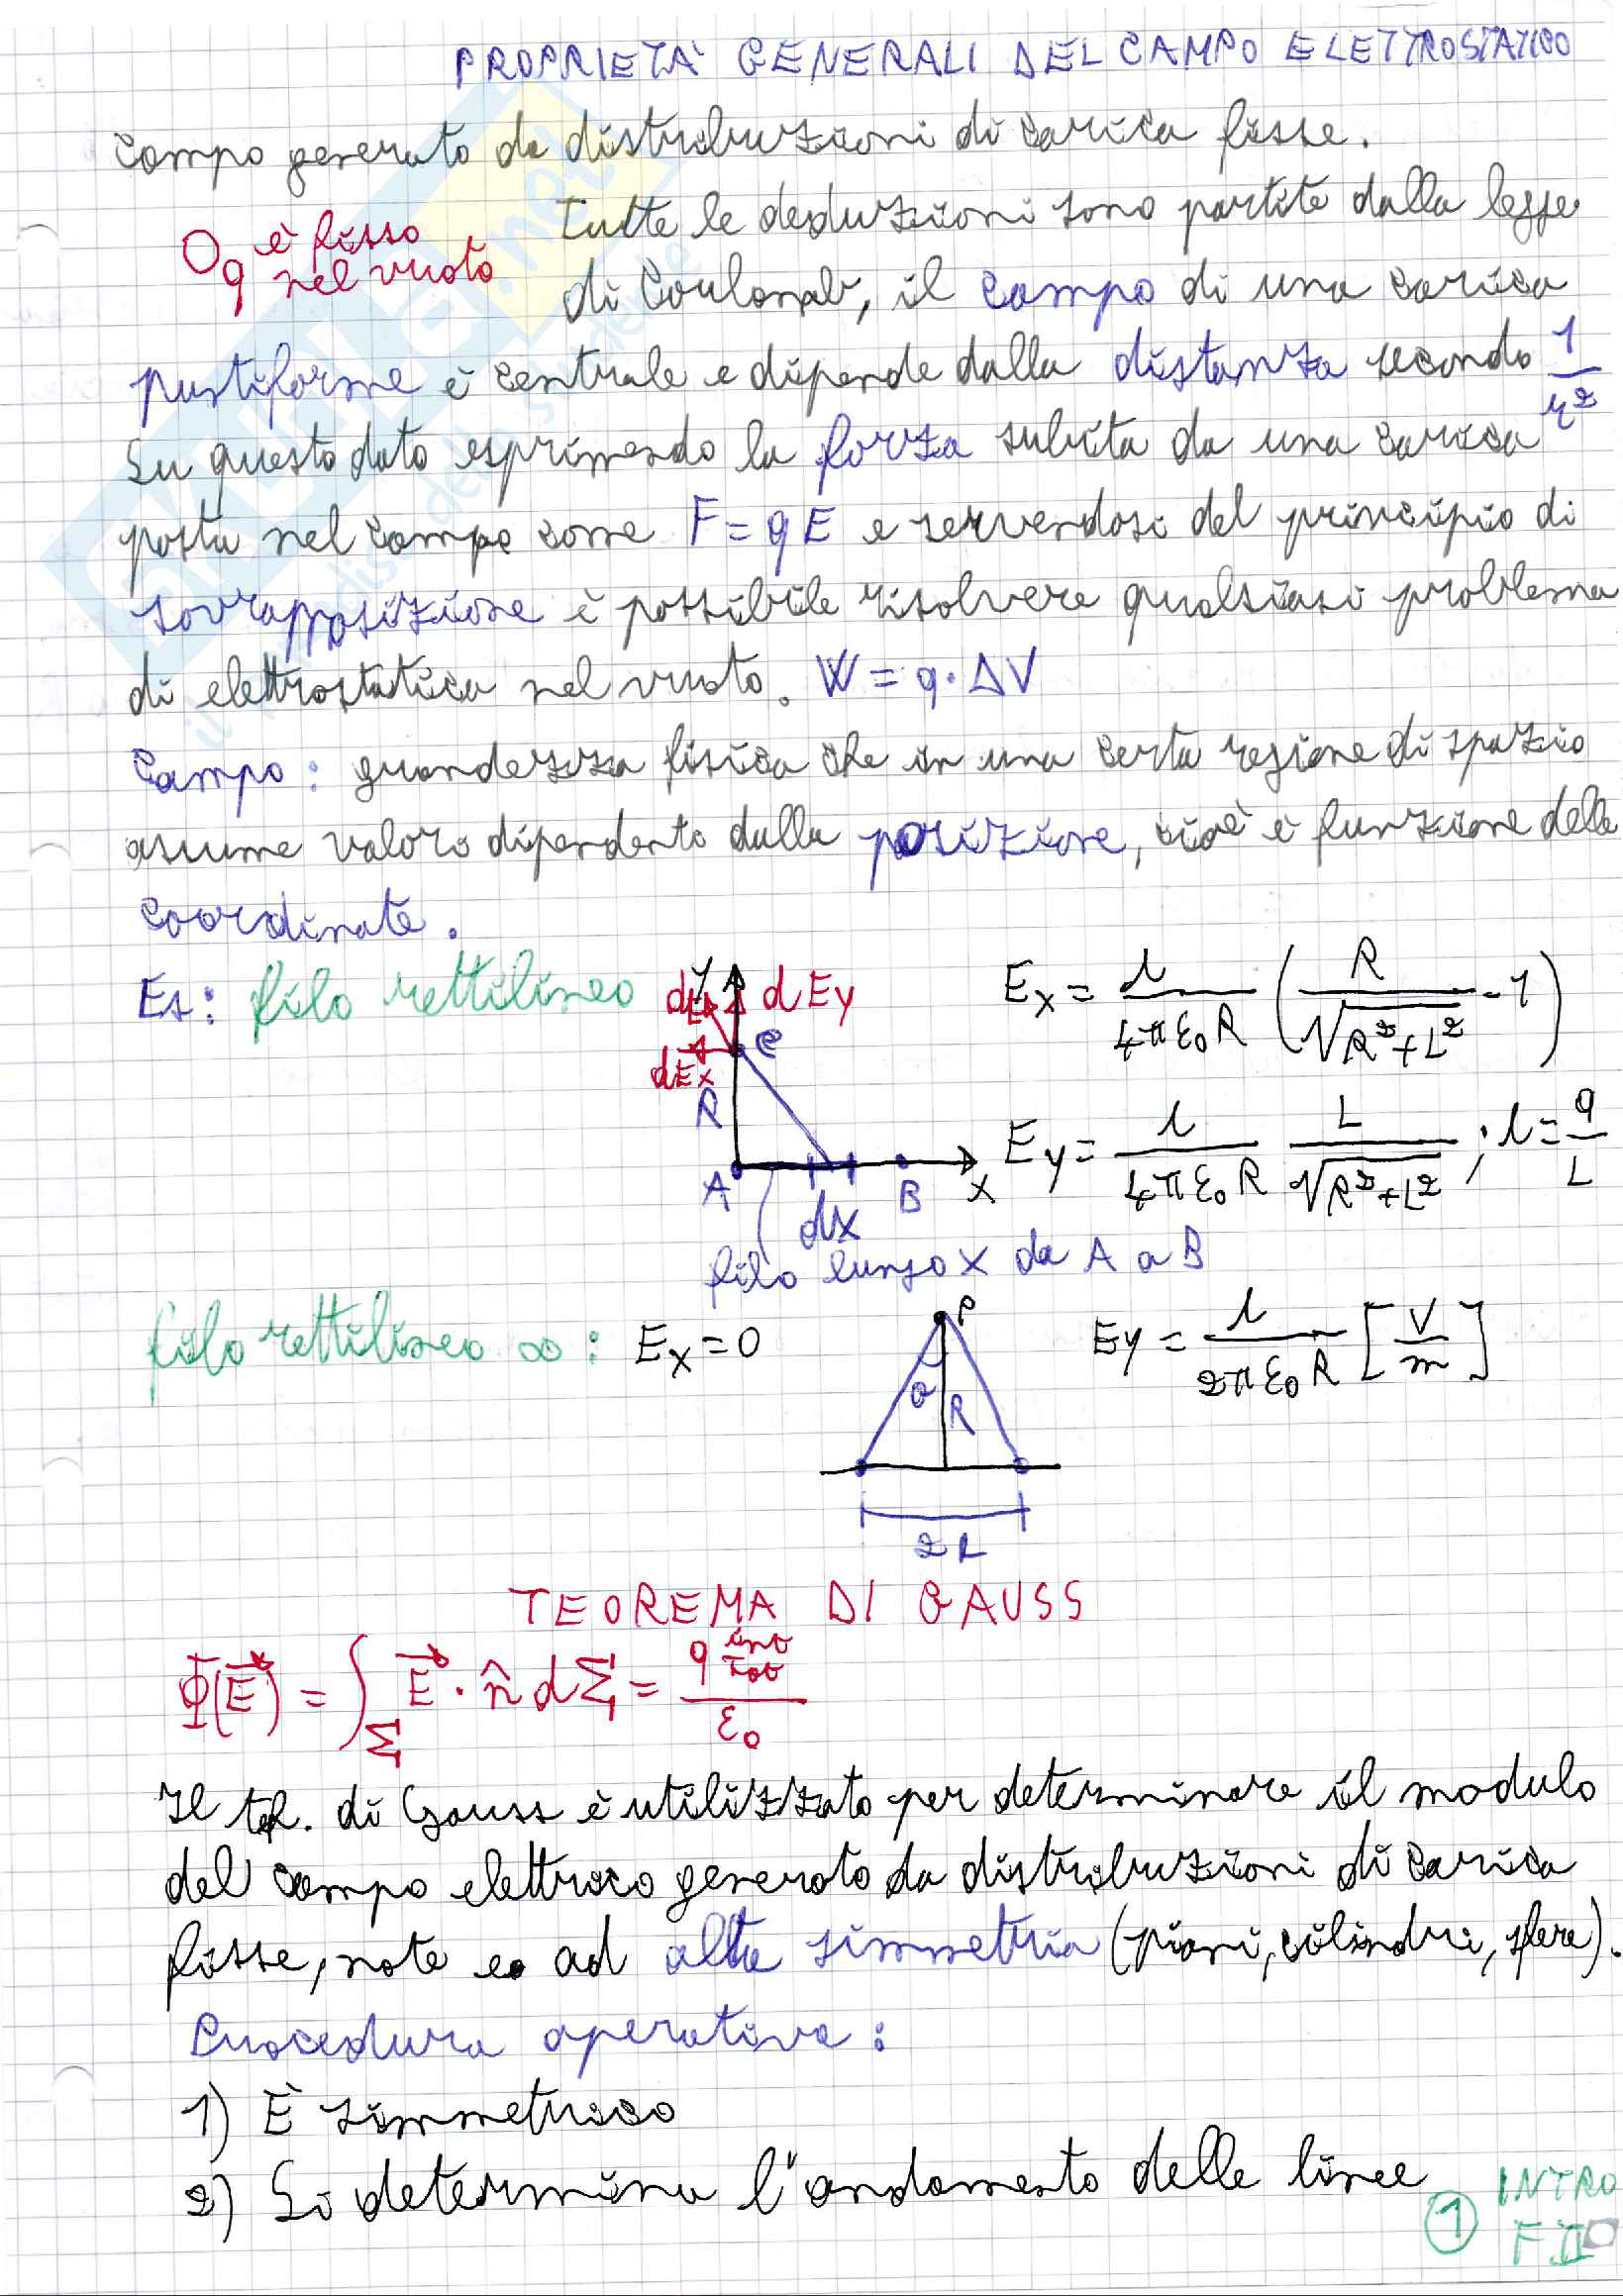 PROPRIETÀ GENERALI DEL CAMPO ELETTROSTATICO
Campo generato da distribuzioni di carica fisse.
q è fisso
nel vuoto
Tutte le deduzioni sono partite dalla legge
di Coulomb, il campo di una carica
puntiforme è centrale e dipende dalla distanza secondo 1/r²
Su questo dato esprimendo la forza subita da una carica
posta nel campo come F = qE e servendosi del principio di
sovrapposizione è possibile risolvere qualsiasi problema
di elettrostatica nel vuoto. W = q·ΔV
Campo: grandezza fisica che in una certa regione di spazio
assume valori dipendenti dalla posizione, cioè è funzione delle
coordinate.
Es: filo rettilineo
dE
y
dEy
P
dEx
R
A
B
x
dx
filo lungo x da A a B
Ex = λ/(4πε₀R) (R/√(R²+L²) - 1)
Ey = λ/(4πε₀R) L/√(R²+L²) ; λ = q/L
filo rettilineo ∞: Ex = 0
P
θ
R
2L
Ey = λ/(2πε₀R) [V/m]
TEOREMA DI GAUSS
Φ(E⃗) = ∫_Σ E⃗ · n̂ dΣ = q int tot / ε₀
Il teo. di Gauss è utilizzato per determinare il modulo
del campo elettrico generato da distribuzioni di carica
fisse, note e ad alta simmetria (piani, cilindri, sfere).
Procedura operativa:
1) È simmetrico
2) Si determina l'andamento delle linee
1
INTRO
F II